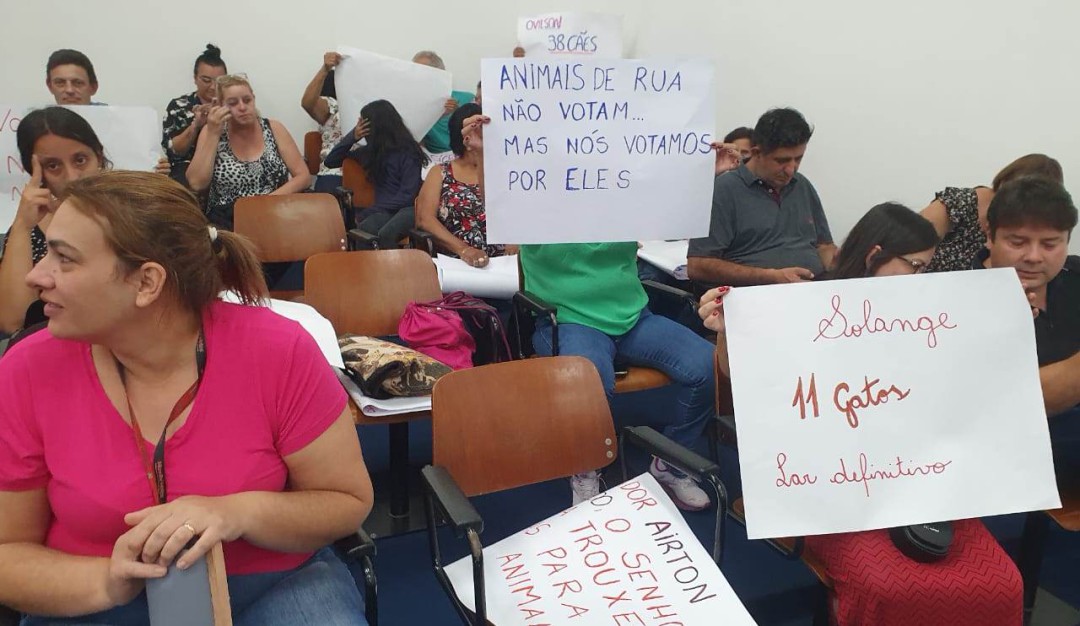 OVILSON
38 CÃES
ANIMAIS DE RUA
NÃO VOTAM...
MAS NÓS VOTAMOS
POR ELES
Solange
11 Gatos
Lar definitivo
DOR AIRTON
O, O SENHO
TROUXE
S PARA
ANIMA